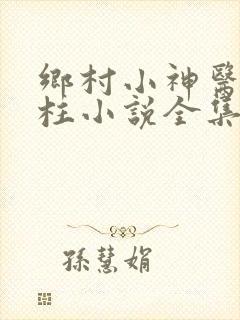 鄉村小神醫
柱小說全集
孫慧娟